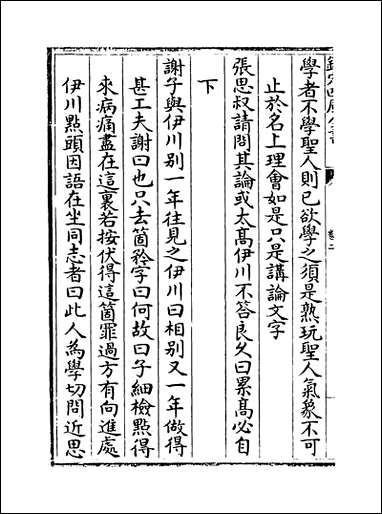 欽定四庫全書
學者不學聖人則已欲學之須是熟玩聖人氣象不可
止於名上理會如是只是講論文字
張思叔請問其論或太高伊川不答良久曰累高必自
下
謝子與伊川别一年往見之伊川曰相别又一年做得
甚工夫謝曰也只去箇矜字曰何故曰子細檢㸃得
來病痛盡在這裏若按伏得這箇罪過方有向進處
伊川㸃頭因語在坐同志者曰此人為學切問近思